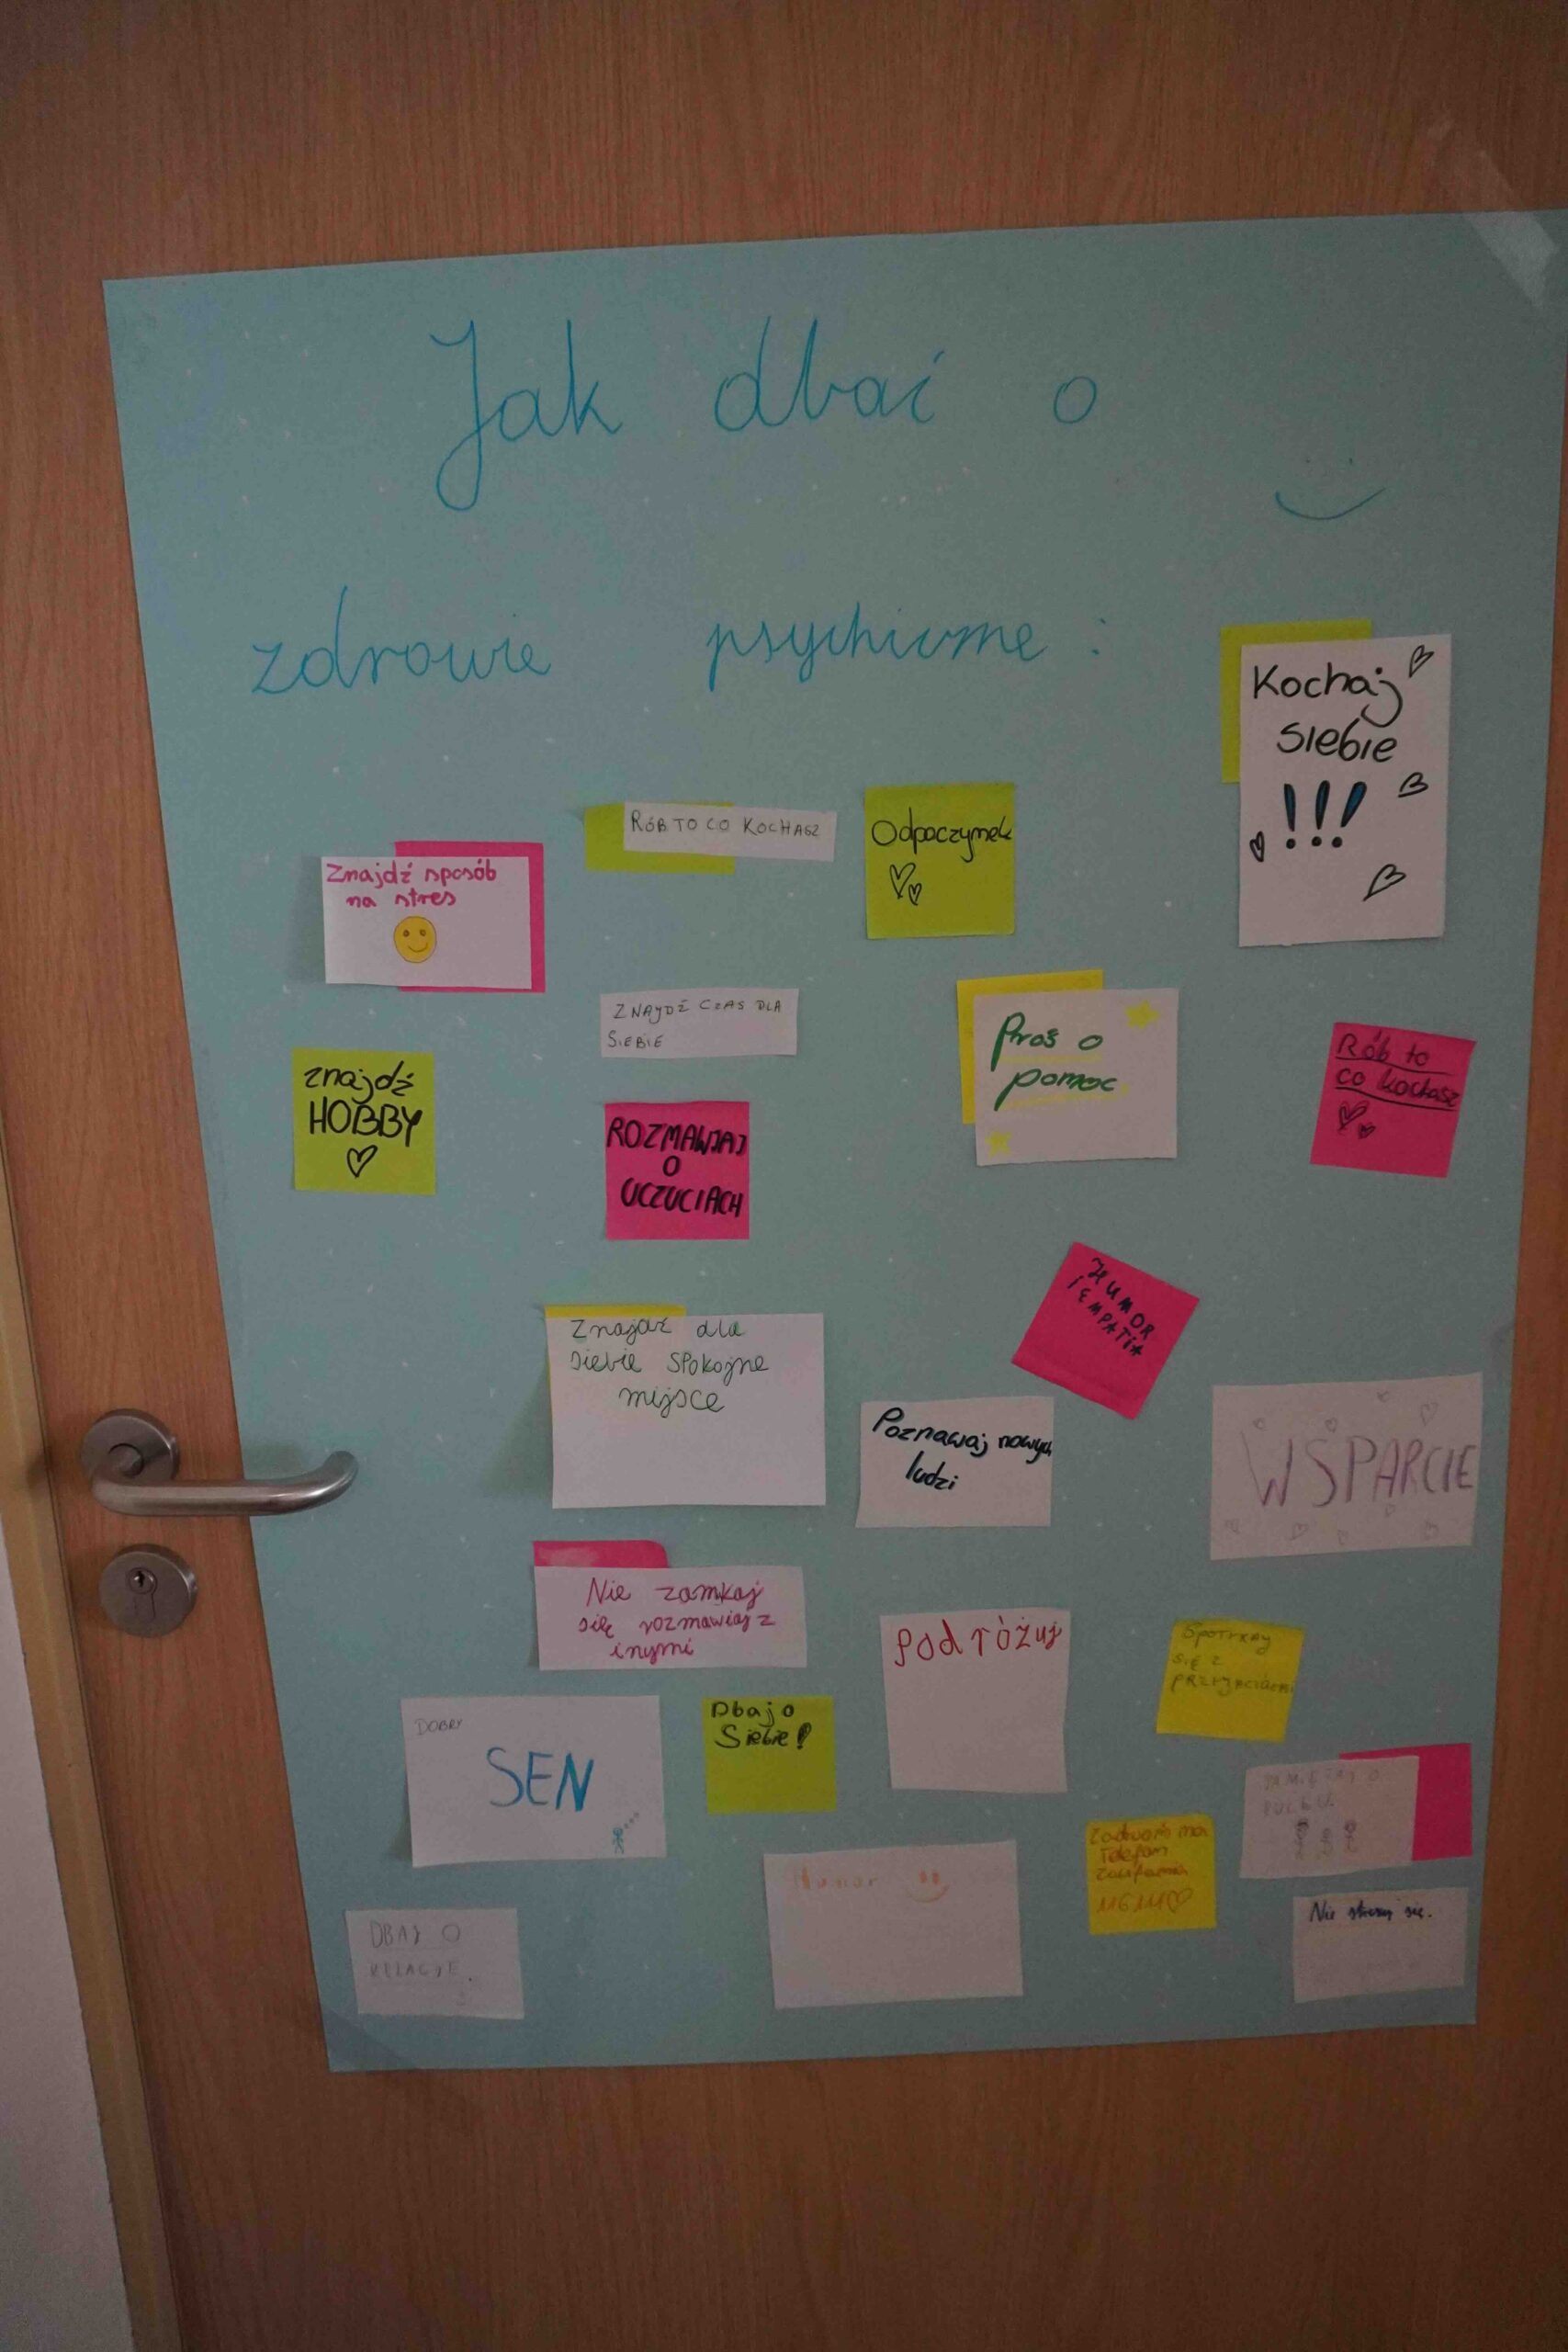 Jak dbać o
zdrowie psychiczne:
Kochaj
siebie
!!!
RÓB TO CO KOCHASZ
Odpoczynek
Znajdź sposób
na stres
ZNAJDŹ CZAS DLA
SIEBIE
Proś o
pomoc
Rób to
co kochasz
znajdź
HOBBY
ROZMAWIAJ
O
UCZUCIACH
HUMOR
I EMPATIA
Znajdź dla
siebie spokojne
mijsce
Poznawaj nowych
ludzi
WSPARCIE
Nie zamkaj
się rozmawiaj z
inymi
Podróżuj
SPOTYKAJ
SIĘ Z
PRZYJACIÓŁMI
DOBRY
SEN
Dbaj o
Siebie!
PAMIĘTAJ O
Zadzwoń na
Telefon
Zaufania
116 111
Humor
DBAJ O
RELACJE.
Nie stresuj się.